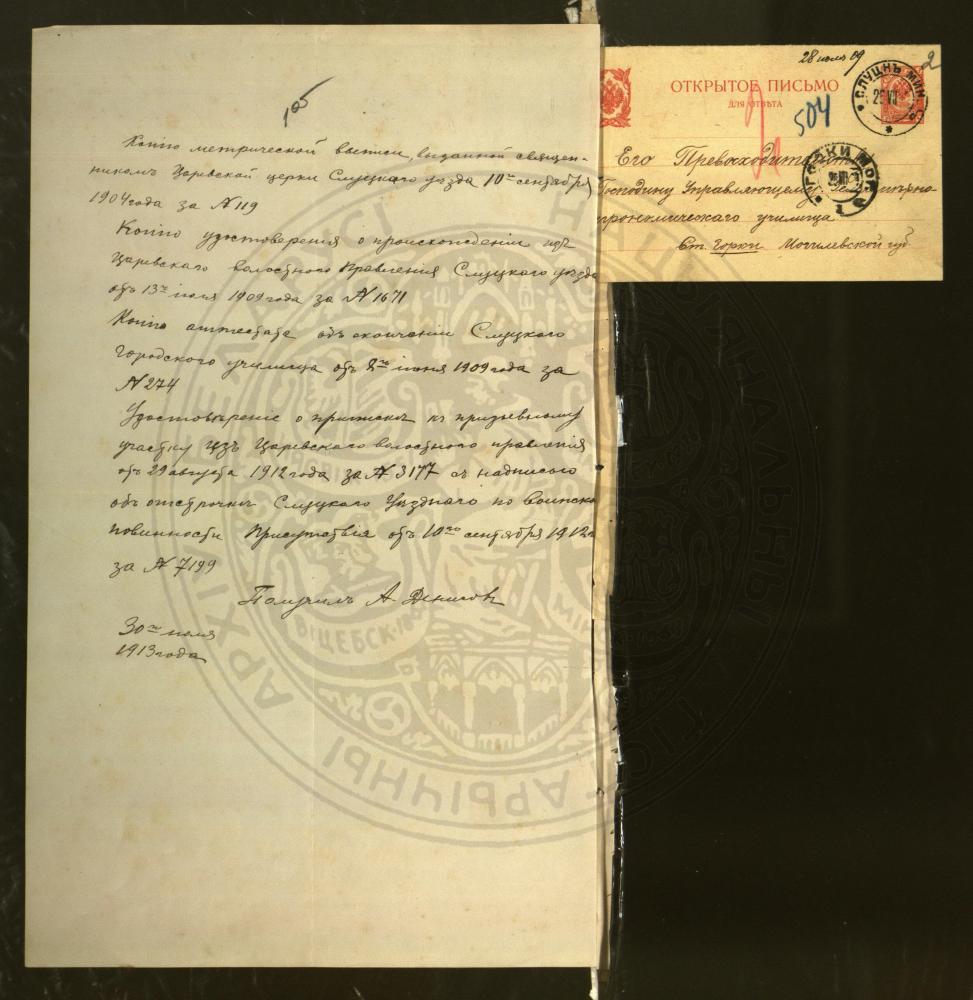 105
Копію метрической выписи, выданной священ-
никомъ Царевской церкви Слуцкаго уѣзда 10го сентября
1904 года за №119
Копію удостоверенія о происхожденіи изъ
Царевскаго волостного Правленія Слуцкаго уѣзда
отъ 13го іюля 1909 года за №1671
Копію аттестата объ окончаніи Слуцкаго
Городского училища отъ 8го іюня 1909 года за
№274
Удостовѣреніе о припискѣ къ призывному
участку изъ Царевскаго волостного правленія
отъ 29 августа 1912 года за №3177 съ надписью
объ отстрочкѣ Слуцкаго Уѣзднаго по воинской
повинности Присутствія отъ 10го сентября 1912 г
за №7199
Получилъ А. Денисовъ
30го іюля
1913 года
28 июля 09
2
ОТКРЫТОЕ ПИСЬМО
ДЛЯ ОТВѢТА
504
СЛУЦКЪ МИН.
Его Превосходительству
Господину Управляющему
агрономическаго училища
Ст. Горки Могилевской губ
ГОРКИ МОГ.
ВІЦЕБСК